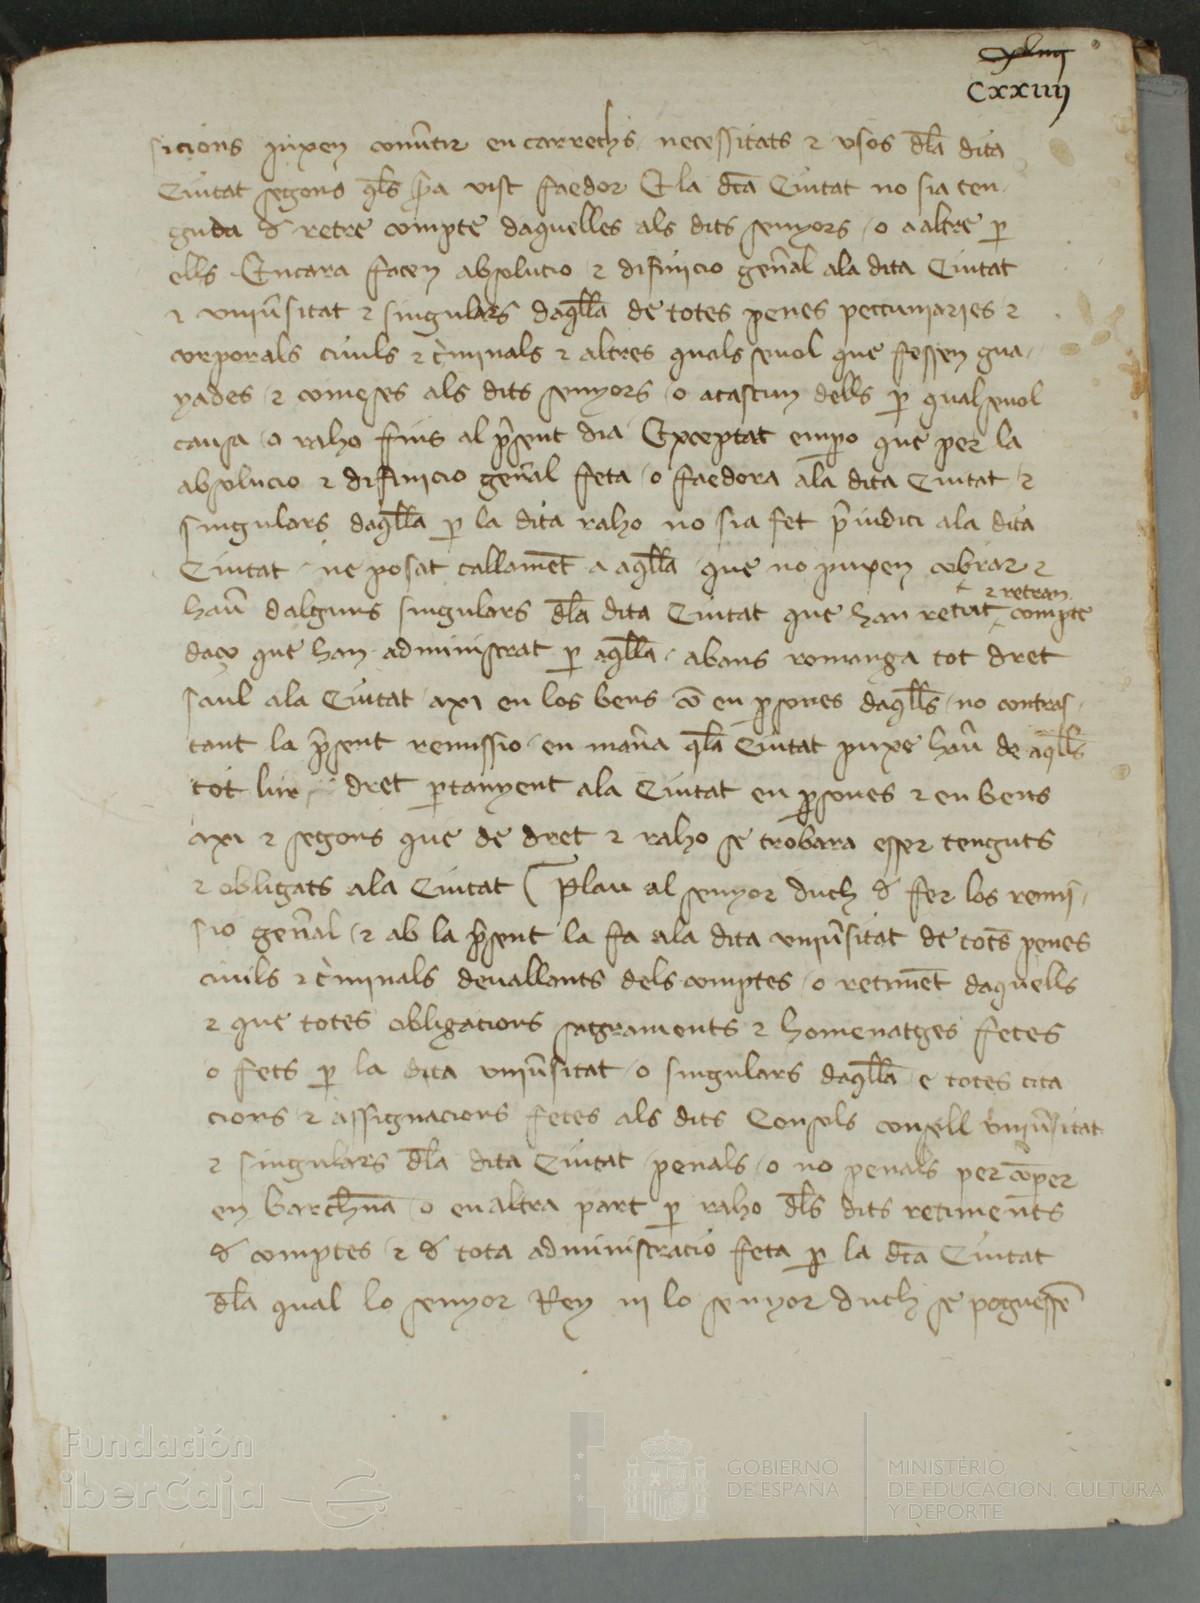 Cxxiiij
sicions puxen conûtir en carrechs / necessitats ⁊ usos d̄la dita
Ciutat segons q̄ls p̄a vist faedor Et la dc̄a Ciutat no sia ten-
guda d̓ retre compte daquelles als dits senyors / o a altre ꝑ
ells · Encara facen absolucio / ⁊ difinicio gen̄al ala dita Ciutat
⁊ uniũsitat ⁊ singulars daq̄lla de totes penes peccuniaries ⁊
corporals ciuils ⁊ c̓minals ⁊ altres quals seuol que fessen gua-
yades / ⁊ comeses als dits senyors / o a cascun dells ꝑ qual seuol
causa / o raho fins al p̄sent dia Exceptat empo que per la
absolucio ⁊ difinicio gen̄al feta / o faedora ala dita Ciutat / ⁊
singulars daq̄lla ꝑ la dita raho no sia fet p̄iudici ala dita
Ciutat / ne posat callamēt a aq̄lla / que no puxen cobrar ⁊
⁊ retran
haũ dalguns singulars d̄la dita Ciutat que han retut compte
daço que han administrat ꝑ aq̄lla / abans romanga tot dret
saul ala Ciutat / axi en los bens cō en ꝑsones daq̄lls / no contras-
tant la p̄sent remissio / en man̄a q̄la Ciutat puxe haũ de aq̄lls
tot lur dret ꝑtanyent ala Ciutat en ꝑsones ⁊ en bens
axi ⁊ segons que de dret ⁊ raho se trobara esser tenguts
⁊ obligats ala Ciutat ( Plau al senyor duch d̓ fer los remi-
sio gen̄al / ⁊ ab la p̄sent la fa ala dita uniũsitat de totes penes
ciuils ⁊ c̓minals deuallants dels comptes / o retimēt daquells
⁊ que totes obligacions sagraments ⁊ homenatges fetes
o fets ꝑ la dita uniũsitat / o singulars daq̄lla / e totes cita
cions ⁊ assignacions fetes als dits Consols consell uniũsitat
⁊ singulars d̄la dita Ciutat / penals / o no penals per cōper
en barch̄na / o en altra part ꝑ raho d̄ls dits retiments
d̓ comptes / ⁊ d̓ tota administracio feta ꝑ la dc̄a Ciutat
d̄la qual lo senyor Rey ni lo senyor duch se poguessē
Fundación
iberCaja
GOBIERNO
DE ESPAÑA
MINISTERIO
DE EDUCACIÓN, CULTURA
Y DEPORTE